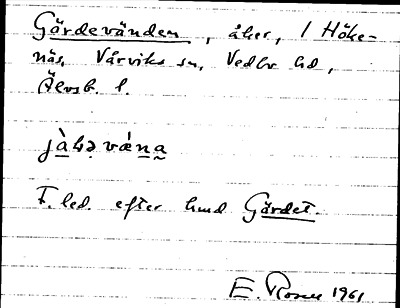 Gärdevänden, åker, 1 Höke-
näs, Vårviks sn, Vedbo hd,
Älvsb. l.
F. led. efter hmd Gärdet.
E. Rosen 1961